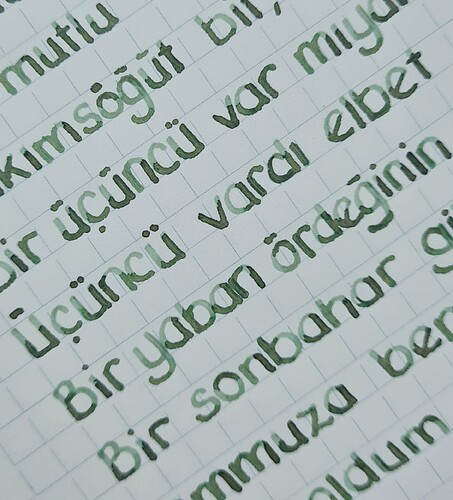 mutlu
kımsöğüt bir,
bir üçüncü var mıydı
Üçüncü vardı elbet
Bir yaban ördeğinin
Bir sonbahar gü
mmuza ben
oldum